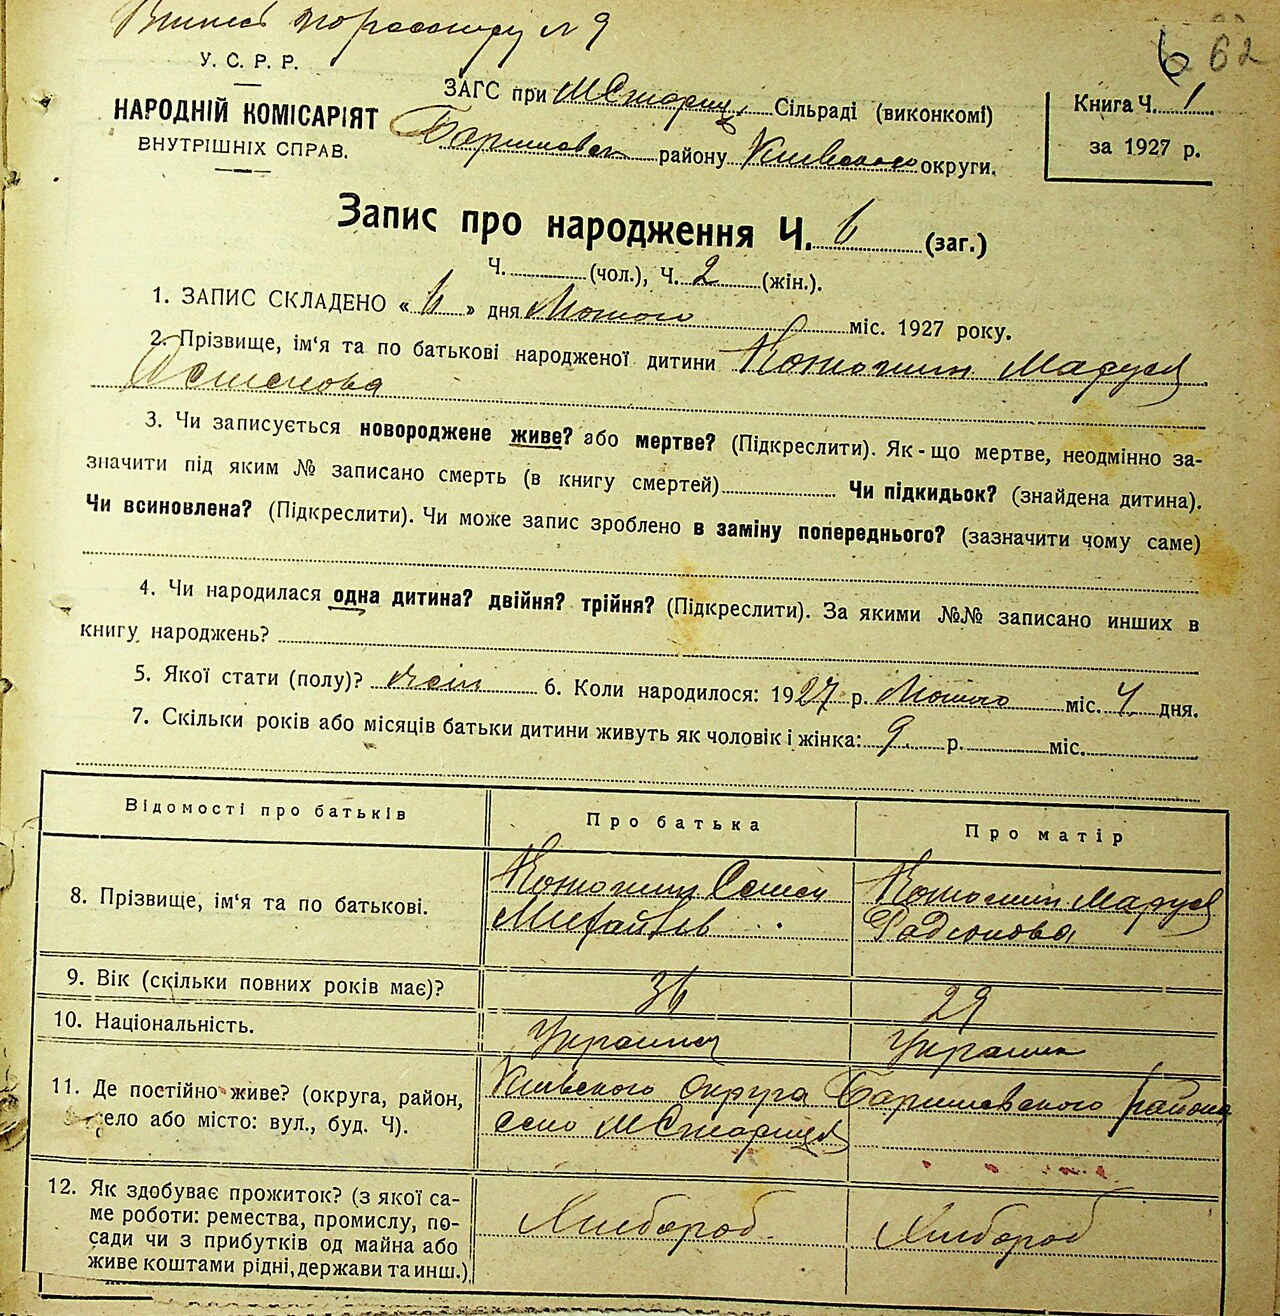 № 9
6 62
У. С. Р. Р.
НАРОДНІЙ КОМІСАРІЯТ
ВНУТРІШНІХ СПРАВ.
ЗАГС при МСтариц. Сільраді (виконкомі)
Баришовск району Київского округи.
Книга Ч. 1
за 1927 р.
Запис про народження Ч. 6 (заг.)
Ч. (чол.), Ч. 2 (жін.).
1. ЗАПИС СКЛАДЕНО « 6 » дня Лютого міс. 1927 року.
2. Прізвище, ім'я та по батькові народженої дитини Маруся
3. Чи записується новороджене живе? або мертве? (Підкреслити). Як-що мертве, неодмінно за-
значити під яким № записано смерть (в книгу смертей) Чи підкидьок? (знайдена дитина).
Чи всиновлена? (Підкреслити). Чи може запис зроблено в заміну попереднього? (зазначити чому саме)
4. Чи народилася одна дитина? двійня? трійня? (Підкреслити). За якими №№ записано инших в
книгу народжень?
5. Якої стати (полу)? жін 6. Коли народилося: 1927 р. Лютого міс. 4 дня.
7. Скільки років або місяців батьки дитини живуть як чоловік і жінка: 9 р. міс.
Відомості про батьків Про батька Про матір
8. Прізвище, ім'я та по батькові. Маруся
Михайлів Радионова
9. Вік (скільки повних років має)? 36 29
10. Національність. Украинец Украинк
11. Де постійно живе? (округа, район, Київского округа Баришевского района
село або місто: вул., буд. Ч). село МСтариця
12. Як здобуває прожиток? (з якої са-
ме роботи: ремества, промислу, по- Хлібороб Хлібороб
сади чи з прибутків од майна або
живе коштами рідні, держави та инш.)